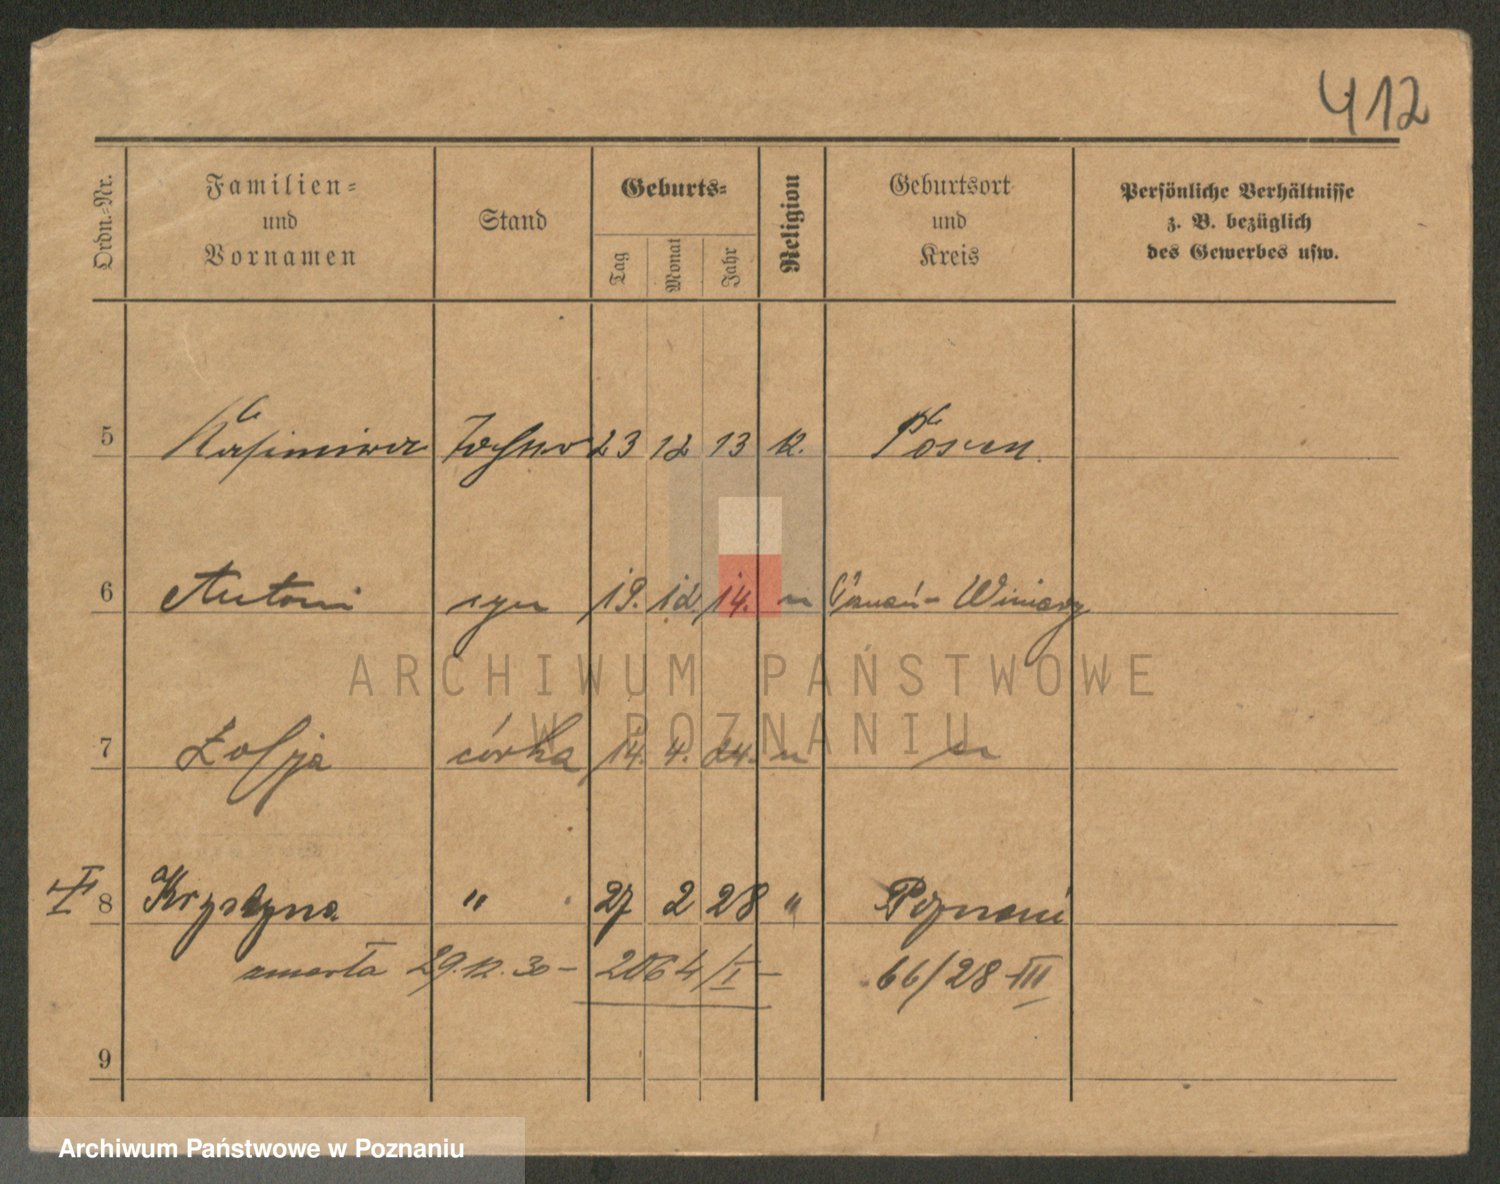 412
Ordn.-Nr.
Familien-
und
Vornamen
Stand
Geburts-
Tag Monat Jahr
Religion
Geburtsort
und
Kreis
Persönliche Verhältnisse
z. B. bezüglich
des Gewerbes usw.
5 Kasimira 23 12 13 k. Posen
6 Antoni syn 19. 12. 14. " Poznań - Winiary
ARCHIWUM PAŃSTWOWE
W POZNANIU
7 Zofja córka 14. 4. 24. " "
8 Krystyna " 27 2 28 " Poznań
zmarła 29.12.30 - 2064/I - 66/28 III
9
Archiwum Państwowe w Poznaniu